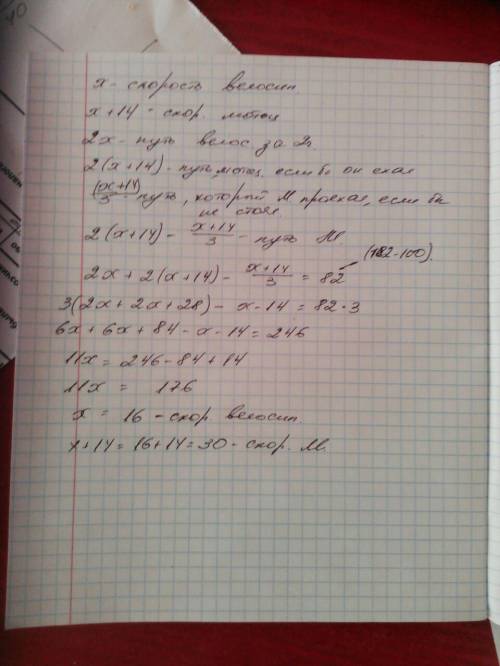 x - скорость велосип.
x+14 - скор. мотоц
2x - путь велос. за 2ч
2(x+14) - путь мотоц, если бы он ехал
(x+14)/3 - путь, который М проехал, если бы
не стоял.
2(x+14) - (x+14)/3 - путь М
(182-100).
2x + 2(x+14) - (x+14)/3 = 82
3(2x + 2x + 28) - x - 14 = 82·3
6x + 6x + 84 - x - 14 = 246
11x = 246 - 84 + 14
11x = 176
x = 16 - скор. велосип.
x+14 = 16+14 = 30 - скор. М.